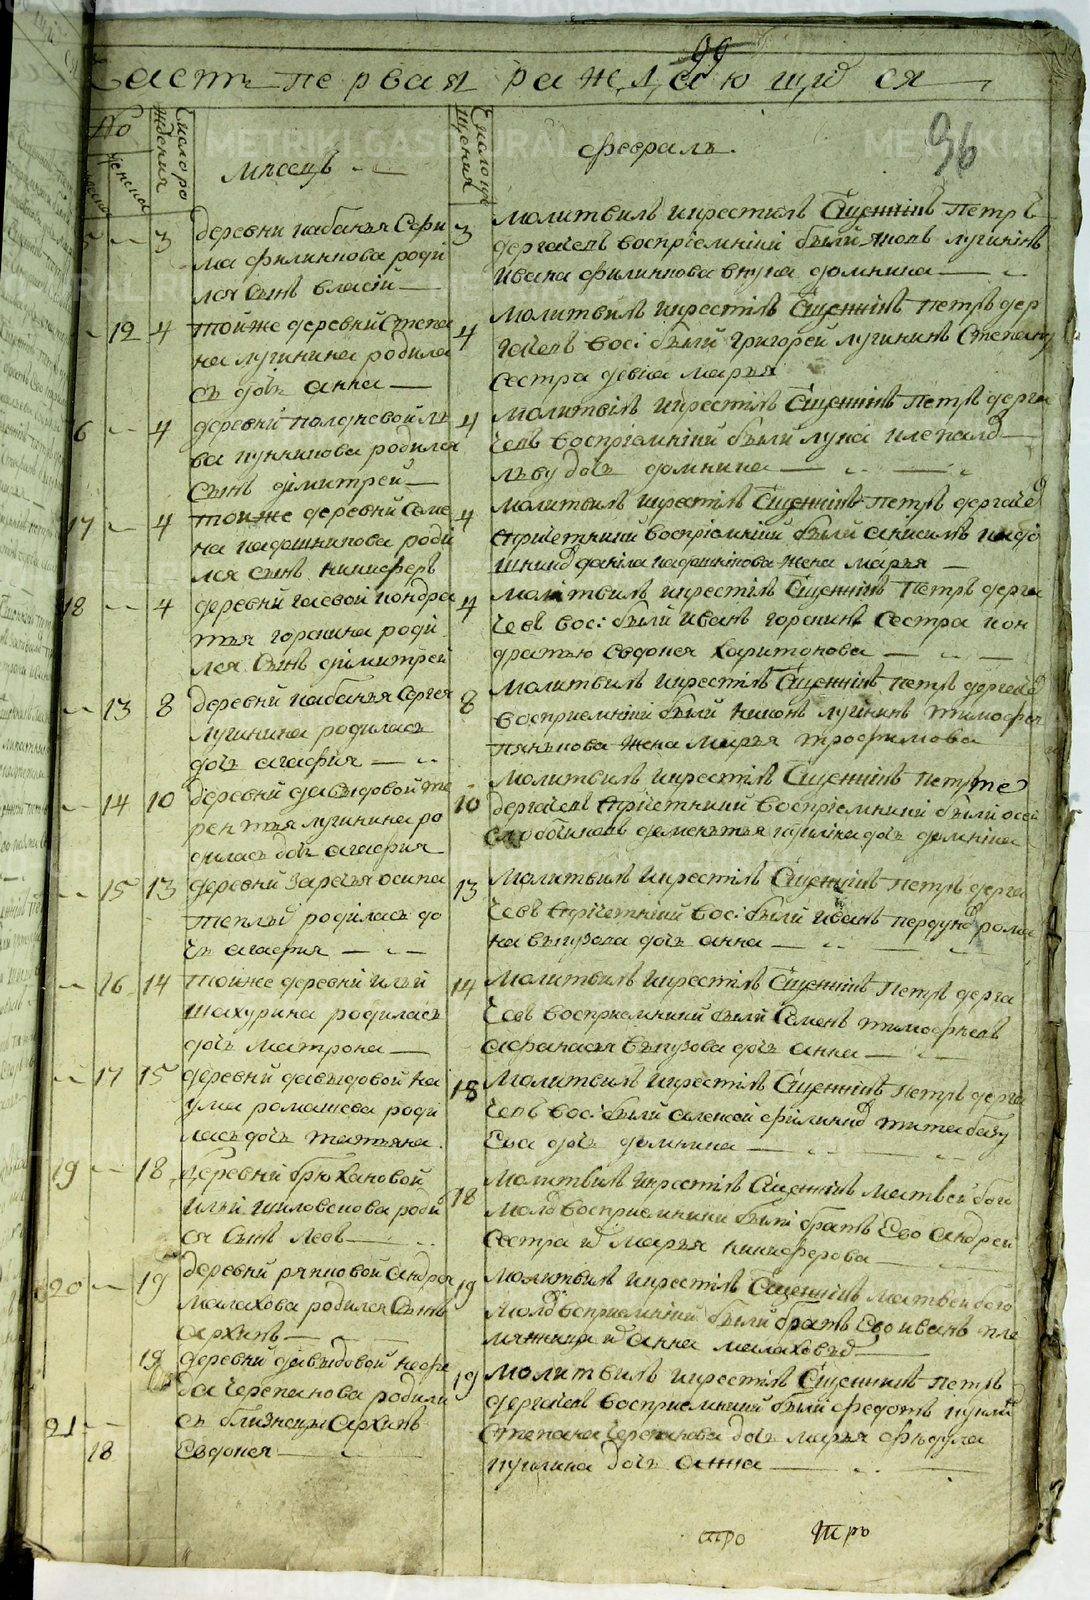 99
Часть первая раждающихся
96
Число рождения
Месецъ
Число крщения
февраль
3
деревни кабанья Ефи
ма филиппова роди
лся сынъ власiй
3
молитвилъ икрестилъ Сщенникъ петръ
дергачевъ воспрiемники были яковъ лугининъ
Ивана филиппова внука домника
12
4
тойже деревни Степа
на лугинина родила
съ дочь анна
4
молитвилъ икрестилъ Сщенникъ петръ дер
гачевъ вос: были григорей лугининъ Степану
сестра девка марья
6
4
деревни полдневой ль
ва пунгина родился
Сынъ димитрей
4
молитвилъ икрестилъ Сщенникъ петръ дерга
чевъ воспрiемники были лука
льву дочь домника
17
4
тойже деревни Семе
на кадошникова роди
лся сынъ никифоръ
4
молитвилъ икрестилъ Сщенникъ петръ дергачев
спричетники воспрiемники были анисимъ
данила кадошникова жена марья
18
4
деревни гаевой кондра
тья горокина роди
лся Сынъ димитрей
4
молитвилъ икрестилъ Сщенникъ Петръ дерга
чевъ вос: были Иванъ горокинъ Сестра кон
дратью Евдокея Харитонова
13
8
деревни кабанья Сергея
Лугинина родиласъ
дочь агафия
8
молитвилъ икрестилъ Сщенникъ петръ дергачев
восприемники были никонъ лугининъ тимофея
пянкова жена марья трофимова
14
10
деревни давыдовой те
рентья лугинина ро
диласъ дочь агафия
10
молитвилъ икрестилъ Сщенникъ петръ
дергачевъ спричетники воспрiемники были
дементья дочь домника
15
13
деревни заречья осипа
теплых родиласъ до
чь агафия
13
молитвилъ икрестилъ Сщенникъ петръ дерга
чевъ спричетники вос: были Иванъ рома
на выгузова дочь анна
16
14
тойже деревни ильи
шахурина родиласъ
дочь матрона
14
молитвилъ икрестилъ Сщенникъ петръ дерга
чевъ восприемники были Семенъ тимофеевъ
афанасья выгузова дочь анна
17
15
деревни давыдовой на
ума ромашева роди
ласъ дочь татьяна
15
молитвилъ икрестилъ Сщенникъ петръ дерга
чевъ вос: были алексей тита
Ева дочь домника
19
18
деревни брюхановой
ильи шиловскова роди
ся Сынъ левъ
18
молитвилъ икрестилъ Сщенникъ матвей бого
мол восприемники были братъ Ево андрей
Сестра марья никифорова
20
19
деревни ряпковой андрея
малахова родился Сынъ
архипъ
19
молитвилъ икрестилъ Сщенникъ матвей бого
мол воспрiемники были братъ Ево иванъ пле
мянница анна малаховыхъ
19
деревни давыдовой нефе
да черепанова родили
сь близнецы архипъ
Евдокея
21
18
19
молитвилъ икрестилъ Сщенникъ петръ
дергачевъ восприемники были федотъ
Степана черепанова дочь марья федула
пуглина дочь анна
тро
тро